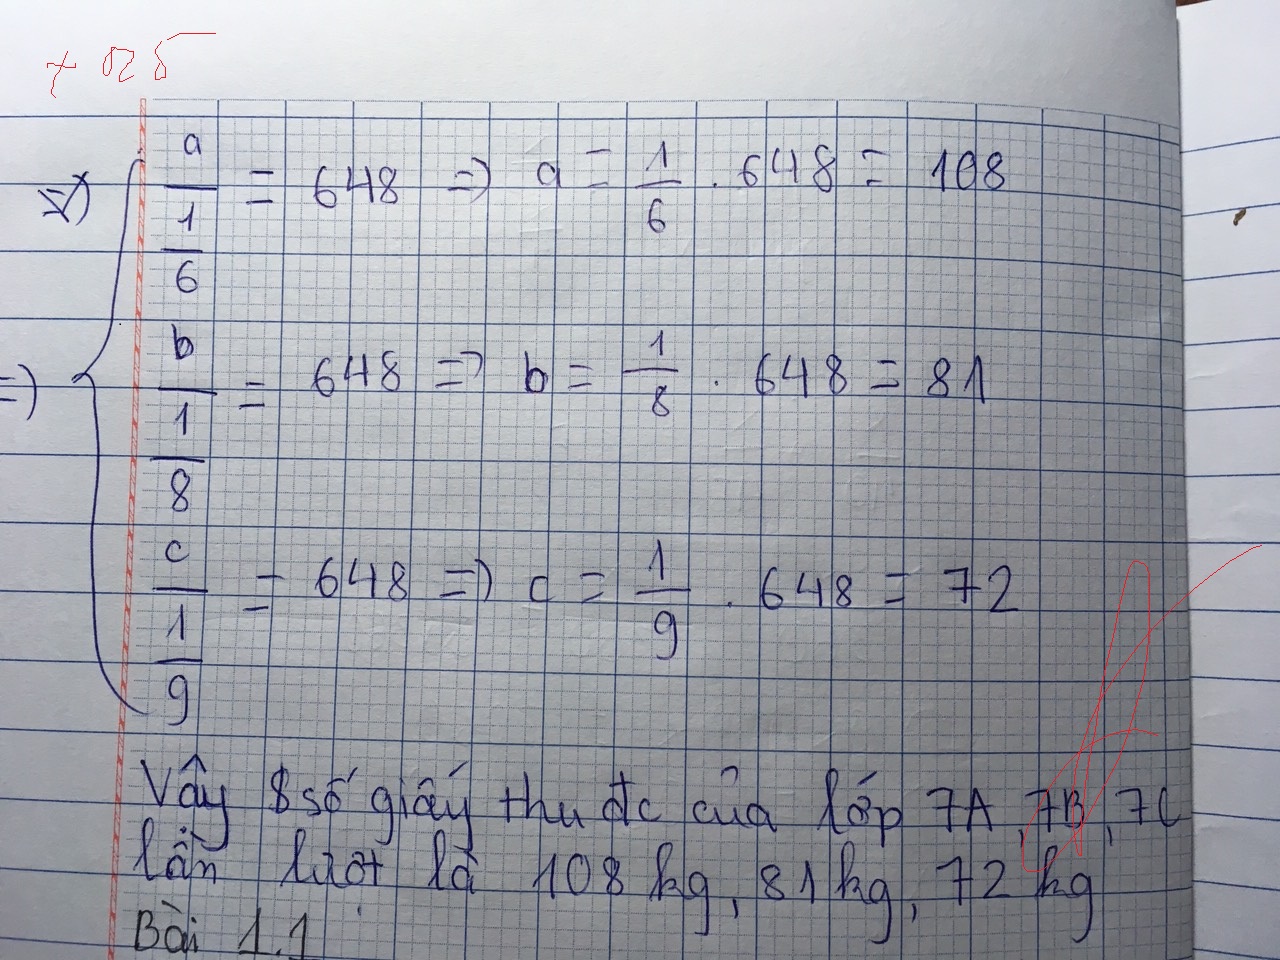 + 025
=> a/(1/6) = 648 => a = 1/6 . 648 = 108
=> b/(1/8) = 648 => b = 1/8 . 648 = 81
c/(1/9) = 648 => c = 1/9 . 648 = 72
Vậy số giấy thu đc của lớp 7A, 7B, 7C
lần lượt là 108 kg, 81 kg, 72 kg
Bài 1.1